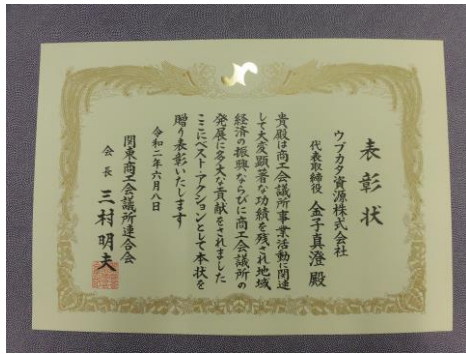 表彰状
ウブカタ資源株式会社
代表取締役 金子真澄 殿
貴殿は商工会議所事業活動に関連
して大変顕著な功績を残され地域
経済の振興ならびに商工会議所の
発展に多大な貢献をされました
ここにベスト・アクションとして本状を
贈り表彰いたします
令和二年六月八日
関東商工会議所連合会
会長 三村明夫